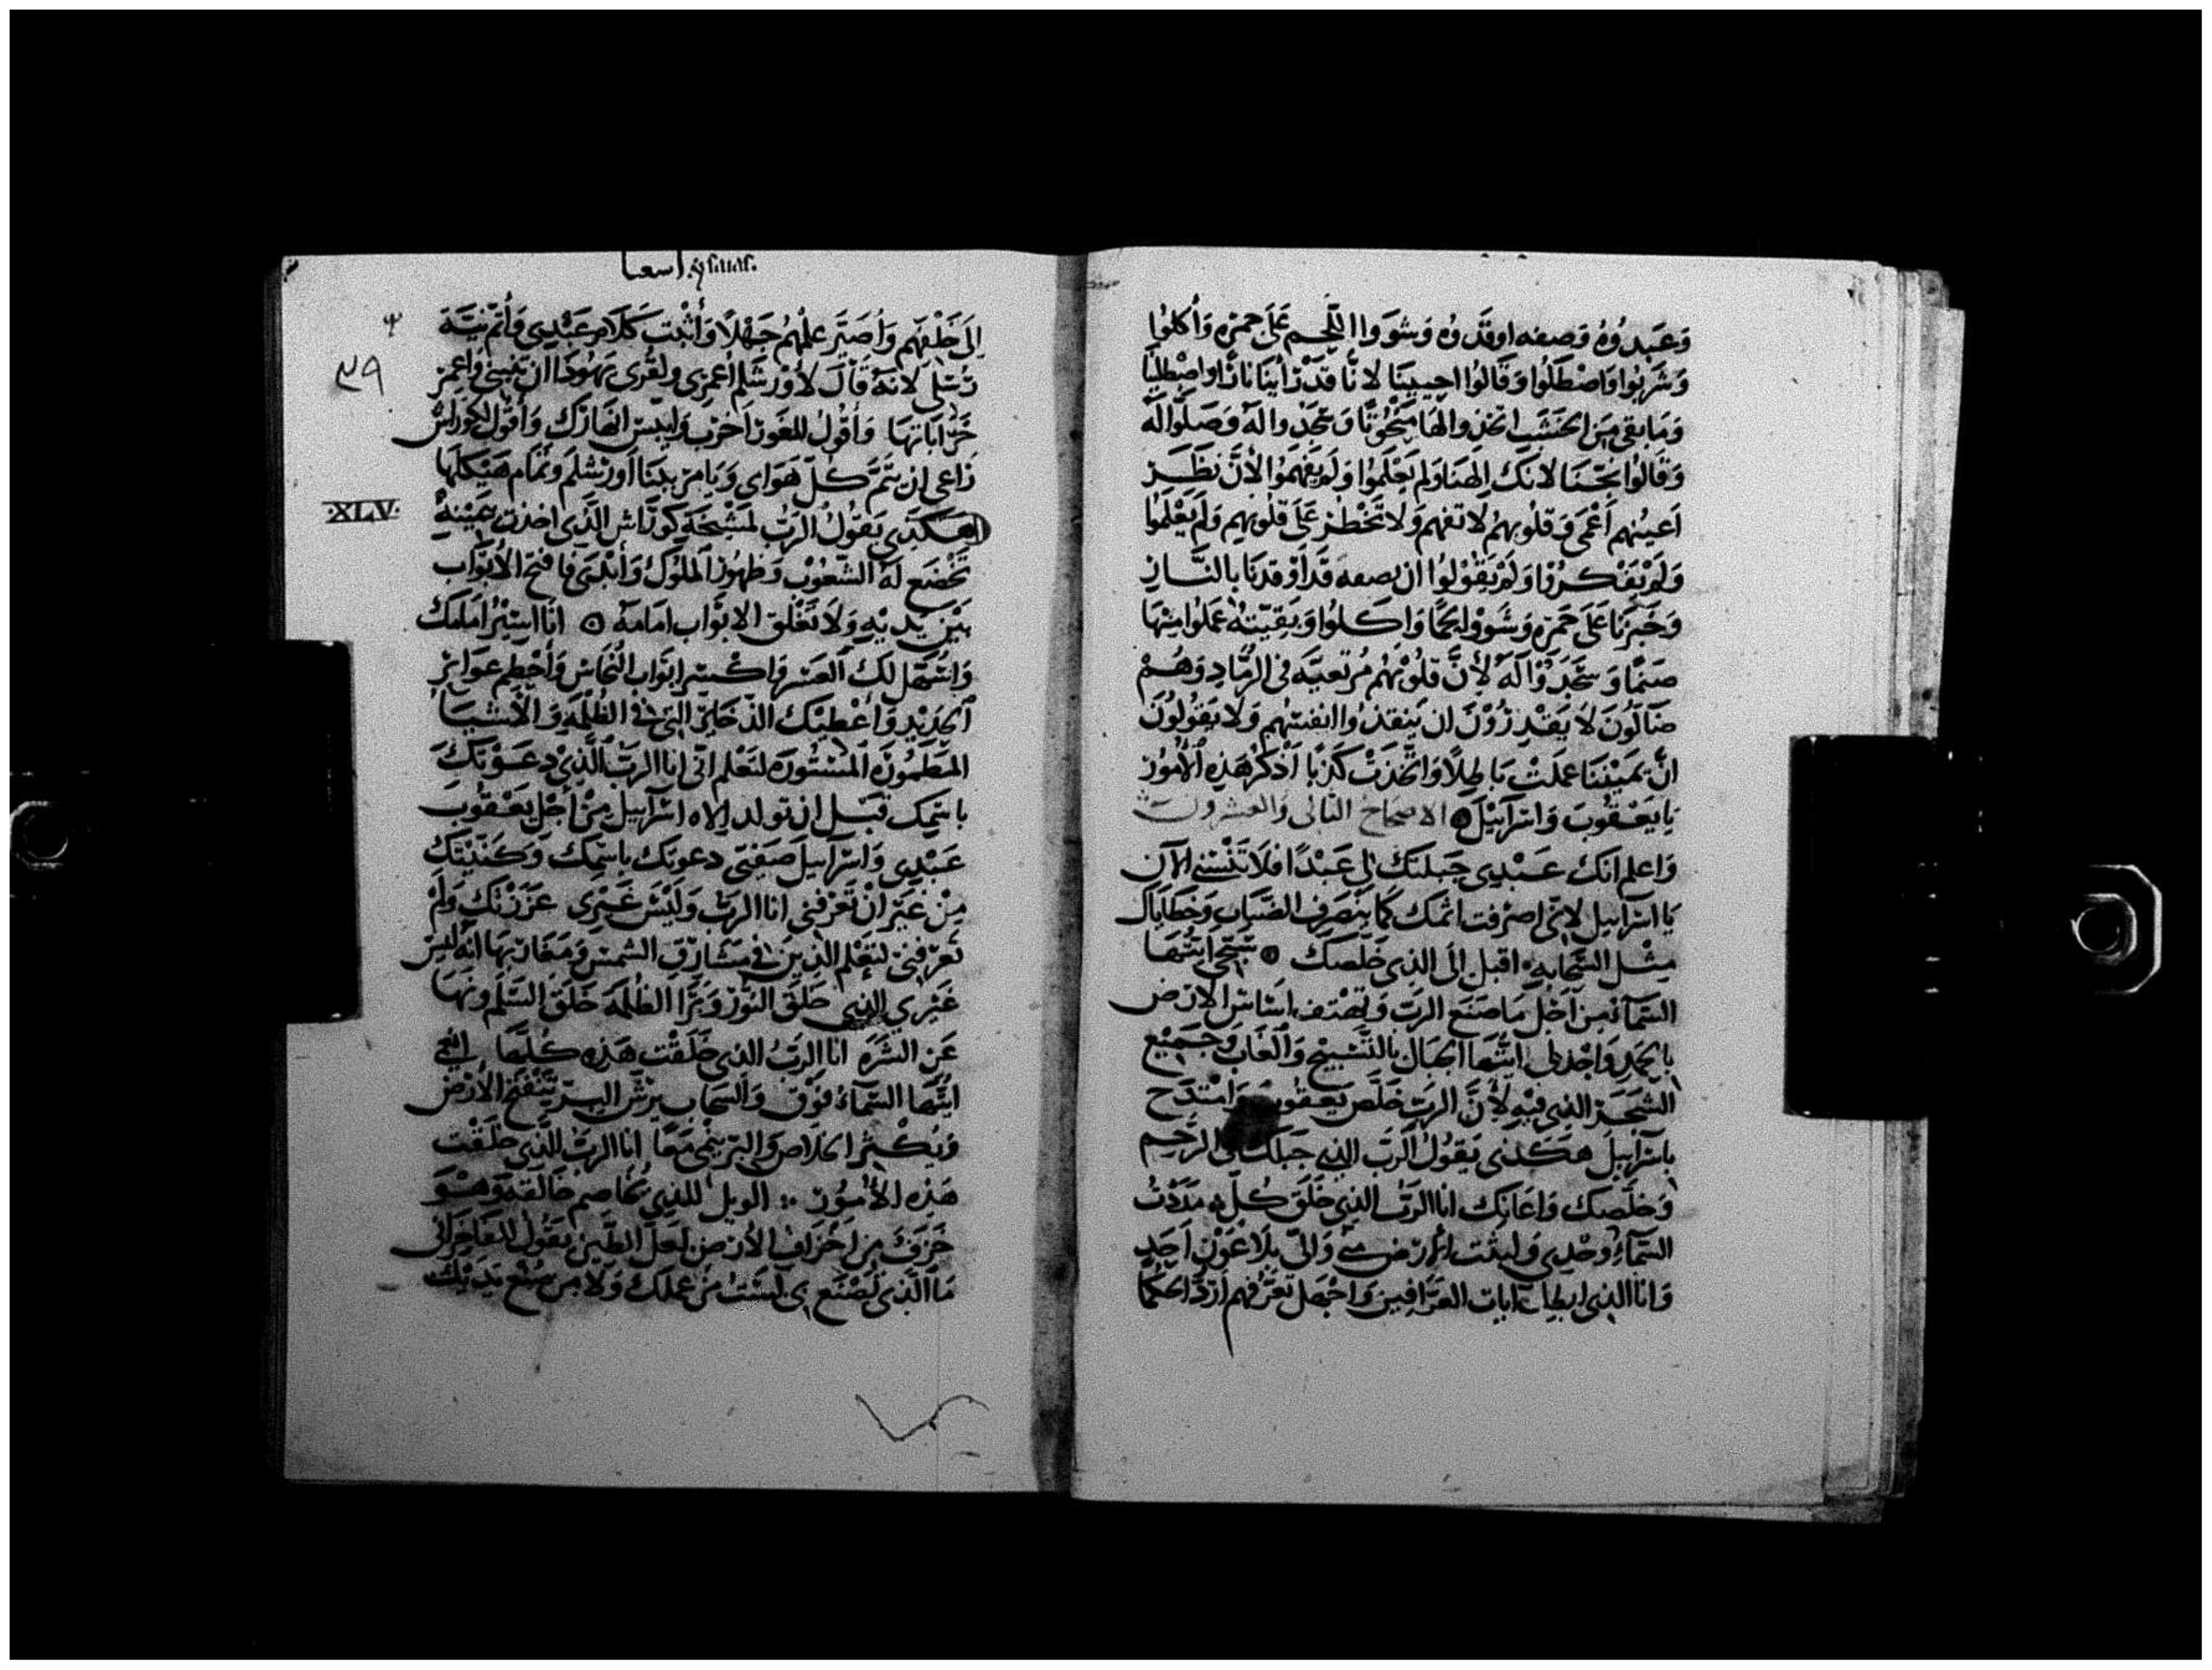 وَعَبَدُوُهُ وَصفه اوقَدُوُه وَشوَوا اللَّحم عَلَى جمره وَأكلوُا
وَشَربُوا وَاصْطَلُوا وَقَالوُا احيينَا لانَّا قَدْ رَأينَا نَارًا واصْطلينَا
وَمَا بَقى مِن الخشَبِ اتخذوا الهًا مَنْحُوتًا وَسَجَدُوا لهُ وَصَلَّوا لَهُ
وَقَالوُا نَجّنَا لانك الهنَا وَلم يَعْلَمُوا وَلَم يَفهمَوا لأنَّ نَظَر
اَعينُهم أَعْمَى وَقلُوبهمُ لا تفهم وَلا تَخْطر عَلَى قلُوبهم وَلم يَعْلَموُا
وَلَم يَفْكرُوا وَلَم يَقُولوُا ان نصفه قَد اَوْقدنَا بالنَّار
وَخَبزنَا عَلَى جمره وَشَووا لحمًا وَاكلوُا وَبَقيّتهُ عملوُا منهَا
صَنمًا وَسَجَدُوا لَهُ لأنَّ قلُوبهُم مُرتعيَه فى الرمَّاد وَهُمْ
ضَالّونَ لا يَقْدِرُوْنَ ان ينقذوُا انفسَهُم وَلا يَقولوُنَ
انّ يَميْننَا عملَتْ بَاطِلًا وَاتَّخَذَتْ كَذبًا اَذكرُ هَذِه الأمُوُر
يَا يَعْقوُبَ وَاسرَآئيلَ ۞ الاصحاح الثانى والعشرون
وَاعلم انَكَ عَبْدِى جَبلتَكَ لى عَبْدًا فلَا تَنْسَنى الآن
يَا اسرَآئيل لانى اصرفت اثمك كَمَا ينصَرف الضَّبَاب وَخَطَايَاك
مِثْل السَّحَابه اقبل الَى الذِى خَلّصك ۞ سَبّحى ايتُهَا
السَّمَآءُ مِن اَجْل مَا صَنَع الرَبّ وَلتهْتف اسَاسَ الارَض
بالحمدِ وَابْجدلى ايّتهَا الجبَال بالتَّسْبيْح وَالغَابُ وَجَمِيْع
الشجَر الذى فيْهِ لأنَّ الربّ خَلَّص يَعقوُب وَامْتدَح
باسرآئيل هَكَذى يَقوُلُ الرَبّ الذِى جَبَلك فى الرَحِم
وَخلّصَك وَاعَانَك انَا الرَبُّ الذِى خلَقَ كُلّ مَدَدْتُ
السَّمَآءَ وحْدِى وَلبثت الارَض مِنّى وَالىّ بلَا عَوْنِ اَحَدٍ
وَانَا الذى ابطلت آيات العرَّافين وَاجْهَل تعَرّفهم اَردّ الحكمَا
اسعيا
إلَى خَلْفِهم وَأصَيّر علْمهُم جَهْلًا وَأثْبت كَلَامَ عَبْدِى وَأتم نيّة
رُسُلى لانهُ قَالَ لأورشَلم اعمرى ولقُرى يَهُوذَا ان تبنى وَاعمر
خَرَابَاتهَا وَأقُولُ للغوَر اَخرب وَلتيبس انهَارَك وَأقول لكوراسُ
رَاعى ان يتمّ كلّ هوَاى وَيَامر ببنَا اَورشلم وَتمَام هَيْكلهَا
هَكَذى يَقولُ الرَبُّ لمَسيْحَه كورَاس الَّذِى اخذت بيمينهِ
تَخْضَع لهُ الشّعُوْب وَظهُوْرُ المُلوُكِ وَأبْلى فافتح الأبوَاب
بَيْن يَديْهِ وَلَا تغلق الابوَاب امَامهُ ۞ انَا اسيْرُ امَامَكَ
وَاسَهّل لَك العَسر وَاكْسر ابوَاب النُّحَاس وَأحْطم عوَارض
الحَدِيْدِ وَأعْطيْكَ الذّخَائر التى فى الظُّلمَةِ وَالأشْيَا
المَطْمُورَه المسْتُورَه لتعْلم انّى انَا الرَبّ الَّذِىْ دعَوْتكَ
باسمك قَبْل ان تولد اله اسرَآئيل مِنْ أَجْل يَعْقُوب
عَبْدِى وَاسرَآئيلَ صَفيّى دعوتَك باسْمِك وَكَنَّيْتَكَ
مِنْ غَيْر انْ تَعْرفنى انا الرَبّ وَلَيْسَ غَيْرى عَزَزتك وَلَمْ
تَعرفنى ليَعْلم الذِيَن فى مَشَارِق الشمْسِ وَمَغَاربهَا انَّه ليسَ
غَيْرى الذِى خلَقَ النُوْر وَبَرَا الظُلمَة خَلَق السَّلَم ونَهَا
عَن الشَرّ انَا الرَبُ الذى خَلقْت هَذِه كُلّهَا افرحى
ايتُهَا السَّمَآءُ فوْق وَالسَّحَاب يرُشّ البِرّ تتفتح الأرْض
وَيُكْثر الخلَاص وَالبرّ ينمى مَعًا انَا الربّ الَّذِى خَلَقْت
هَذِهِ الأُمُوُر : الويل للذِى يخَاصم خالقهُ وَهُوَ
خزَف مِن اَخْزَاف الأرض لعَل الطّين يَقُول للفاخرَانى
مَا الّذِى تَصْنَع بى لسْتُ مِن عَملَك وَلَا مِن صُنْع يَديْك
٣٩
XLV